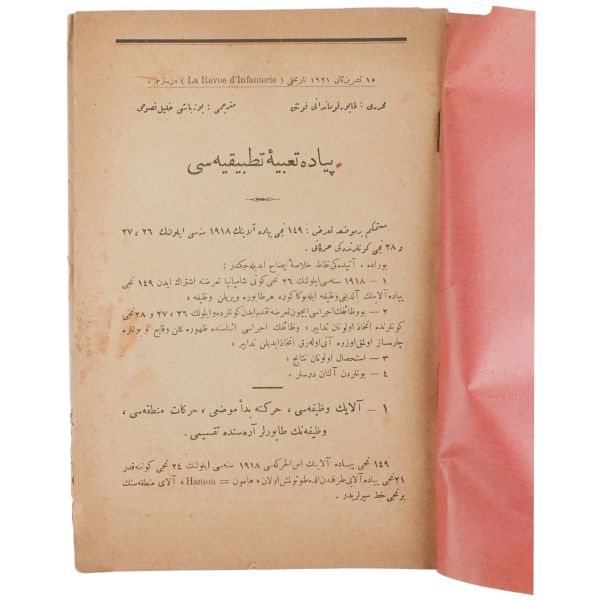 ١٥ تشرین ثانی ١٩٢١ تاریخلی ( La Revue d'Infanterie ) دن مترجم .
محرری : طابور قوماندانی فونتی مترجمی : یوزباشی خلیل فصوحی
پیاده تعبیهٔ تطبیقیه سی
مستحکم بر موضعه تعرض : ١٤٩ نجی پیاده آلاینك ١٩١٨ سنه سی ایلولنك ٢٦ ، ٢٧
و ٢٨ نجی کونلرنده کی حرکاتی .
بوراده . آتیده کی نقاط خلاصةً ایضاح ایدیله جکدر :
١ — ١٩١٨ سنه سی ایلولنك ٢٦ نجی کونی شامپانیا تعرضنه اشتراك ایدن ١٤٩ نجی
پیاده آلاینك آلدیغی وظیفه ایله بوکا کوره هر طابوره ویریلن وظیفه ؛
٢ — بو وظائفك اجراسی ایچون تعرضه تقدم ایدن کونلرده و ایلولك ٢٦ ، ٢٧ و ٢٨ نجی
کونلرنده اتخاذ اولونان تدابیر ؛ وظائفك اجراسی اثناسنده ظهوره کلن وقایع و بونلره
چاره ساز اولمق اوزره آنی اوله رق اتخاذ ایدیلن تدابیر ؛
٣ — استحصال اولونان نتایج ؛
٤ — بونلردن آلنان درسلر .
١ — آلایك وظیفه سی ، حرکته بدأ موضعی ، حرکات منطقه سی ،
وظیفه نك طابورلر آره سنده تقسیمی .
١٤٩ نجی پیاده آلاینك اس الحرکه سی ١٩١٨ سنه سی ایلولك ٢٤ نجی کوننه قدر
٢١ نجی پیاده آلایی طرفندن الده طوتولمش اولان « هامون = Hamon » آلای منطقه سنك
برنجی خط سپرلریدر .